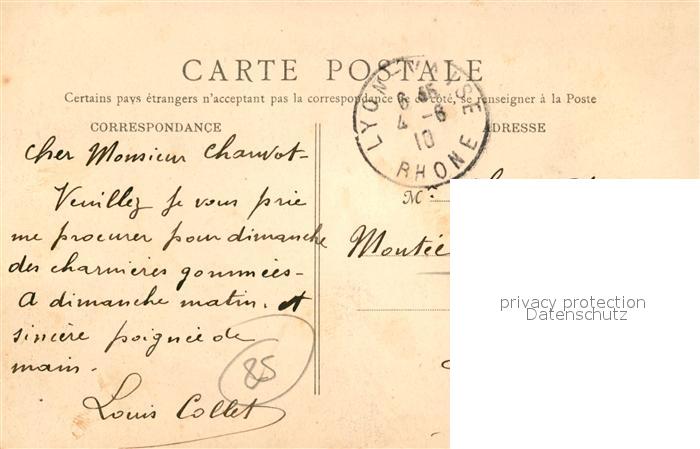 CARTE POSTALE
Certains pays étrangers n'acceptant pas la correspondance de ce côté, se renseigner à la Poste
CORRESPONDANCE
ADRESSE
LYON-VAISE
6 35
4 -6
10
RHONE
Cher Monsieur Charvot-
Veuillez je vous prie
me procurer pour dimanche
des charnières gommées-
A dimanche matin. et
sincère poignée de
main.
Louis Collet
85
M.
Montée
privacy protection
Datenschutz